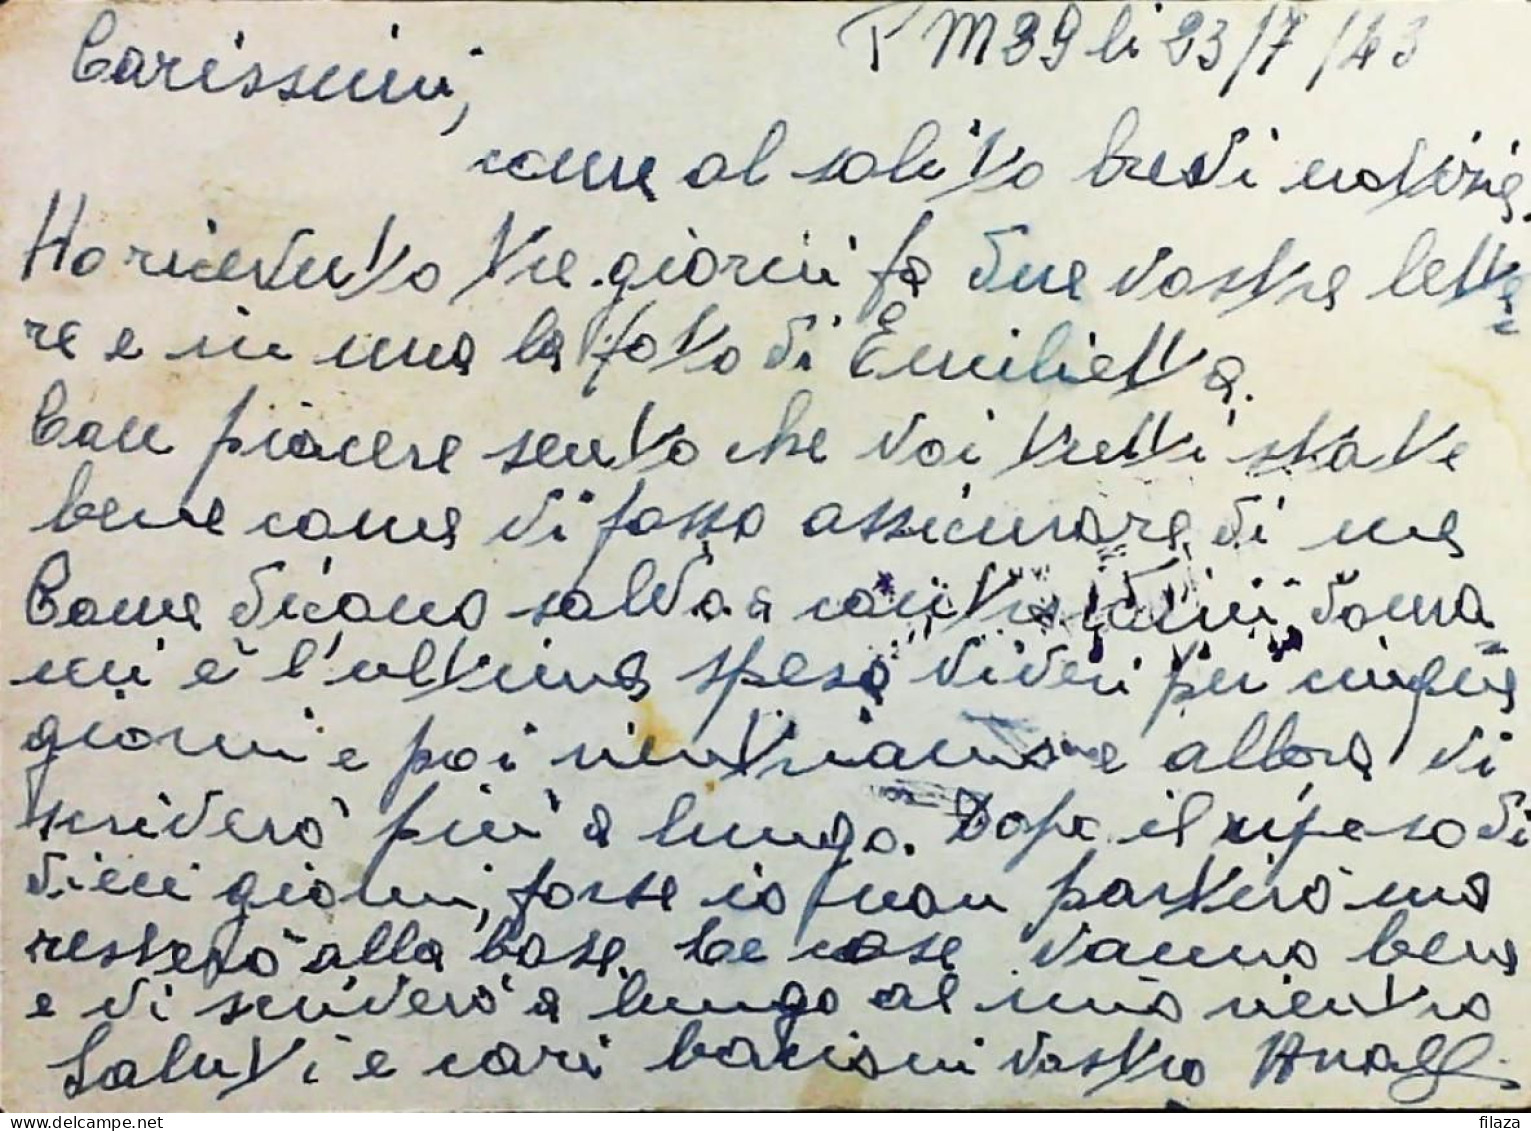 P M 39 li 23/7/43
Carissimi,
come al solito brevi notizie.
Ho ricevuto tre giorni fa due vostre lette=
re e in una la foto di Emilietta.
Con piacere sento che voi tutti state
bene come vi posso assicurare di me
Come dicono salvo contrordini doma=
ni è l'ultima spesa viveri per cinque
giorni e poi rientriamo e allora vi
scriverò più a lungo. Dopo il riposo di
dieci giorni, forse io non partirò ma
resterò alla base. Le cose vanno bene
e vi scriverò a lungo al mio rientro
Saluti e cari bacioni vostro
filaza